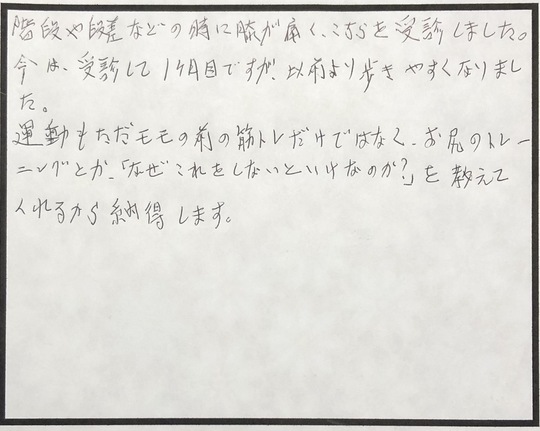 階段や段差などの時に膝が痛く、こちらを受診しました。
今は、受診して1ヶ月目ですが、以前より歩きやすくなりまし
た。
運動もただモモの前の筋トレだけではなく、お尻のトレー
ニングとか、「なぜこれをしないといけなのか?」を教えて
くれるから納得します。